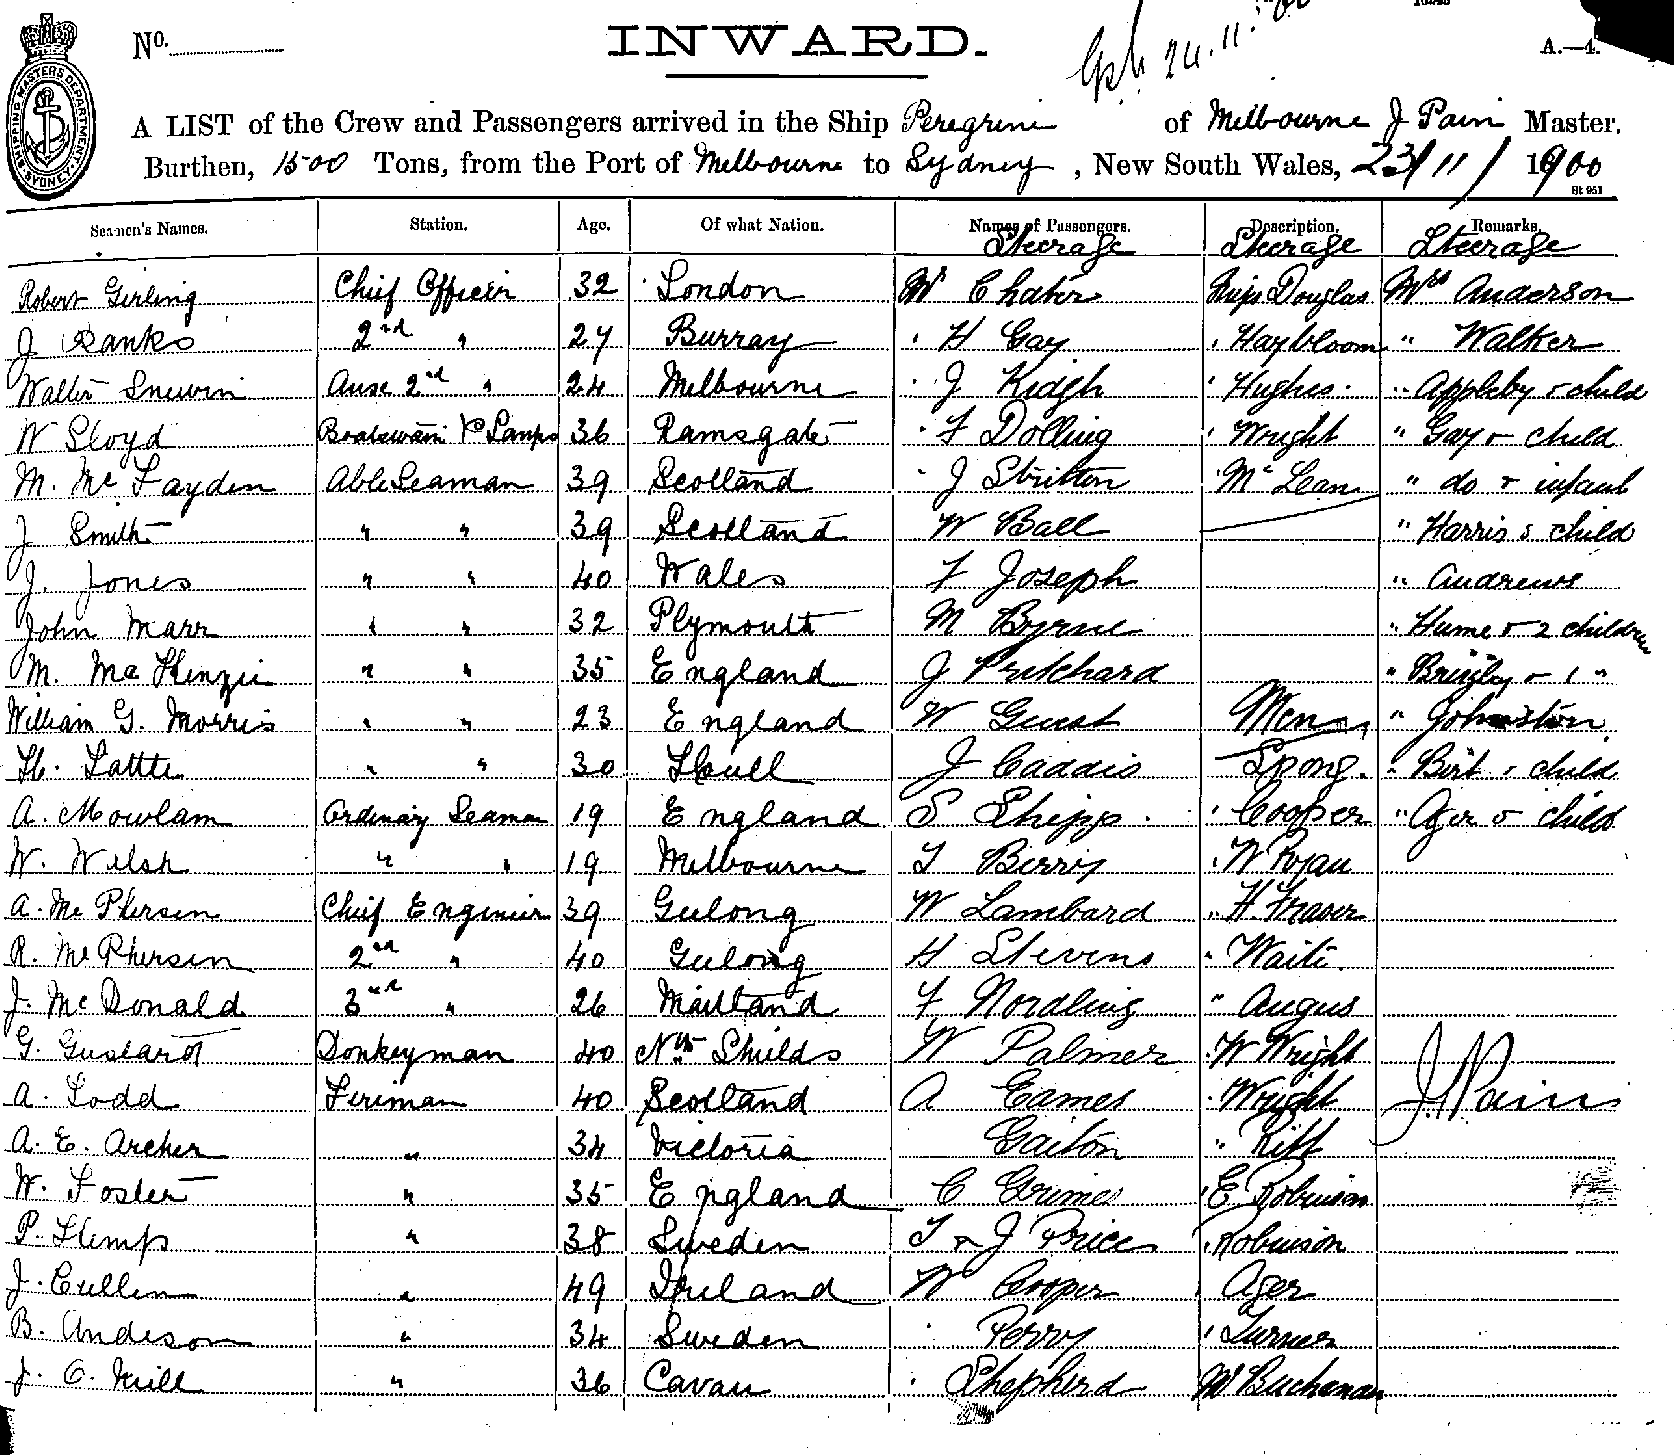 No. INWARD. A.—4.
24.11.
SHIPPING MASTERS DEPARTMENT SYDNEY
A LIST of the Crew and Passengers arrived in the Ship Peregrine of Melbourne J Pain Master.
Burthen, 1500 Tons, from the Port of Melbourne to Sydney, New South Wales, 23/11/1900
St 951
Seamen's Names. Station. Age. Of what Nation. Names of Passengers. Description. Remarks.
Steerage Steerage Steerage
Robert Girling Chief Officer 32 London Mr Chater Douglas Mrs Anderson
J Banks 2nd " 27 Burray " H Gay " Haybloom " Walker
Walter Snewin 2nd " 24 Melbourne " J Keogh " Hughes " Appleby & child
W Lloyd Boatswain & Lamps 36 Ramsgate " F Dolling " Wright " Gay & child
M. McFayden Able Seaman 39 Scotland " J Stritton " McLean " do & infant
J Smith " " 39 Scotland W Ball " Harris & child
J. Jones " " 40 Wales F Joseph " Andrews
John Marr " " 32 Plymouth M Byrne " Hume & 2 children
M. McKenzie " " 35 England J Pritchard " & 1 "
William G. Morris " " 23 England W Guest Men " Johnston
H. Lattte " " 30 Hull J Caddis Spong " Birt & child
A. Mowlam Ordinary Seaman 19 England S Shipp " Cooper " Ager & child
W. Welsh " " 19 Melbourne T Berry " W Ryan
A. McPherson Chief Engineer 39 Geelong W Lambard " H. Fraser
R. McPherson 2nd " 40 Geelong H Stevens " Waite
J. McDonald 3rd " 26 Maitland F Nordling " Angus
G. Donkeyman 40 Nth Shields W Palmer " W Wright
A. Todd Fireman 40 Scotland A Eames " Wright J. Pain
A. E. Archer " 34 Victoria Gaiton " Kitt
W. Foster " 35 England C Grimes " E Robinson
P. Hemp " 38 Sweden T & J Price " Robinson
J. Cullen " 49 Ireland W Cooper " Ager
B. Andeson " 34 Sweden " Perry " Turner
J. O. Neill " 36 Cavan " Shepherd Mr Buchanan